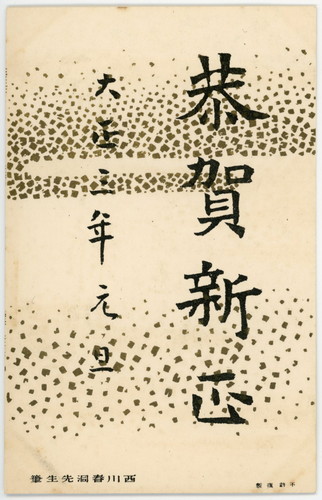 恭賀新正
大正三年元旦
西川春洞先生筆
不許復製